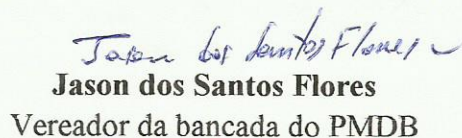 Jason dos Santos Flores
Jason dos Santos Flores
Vereador da bancada do PMDB